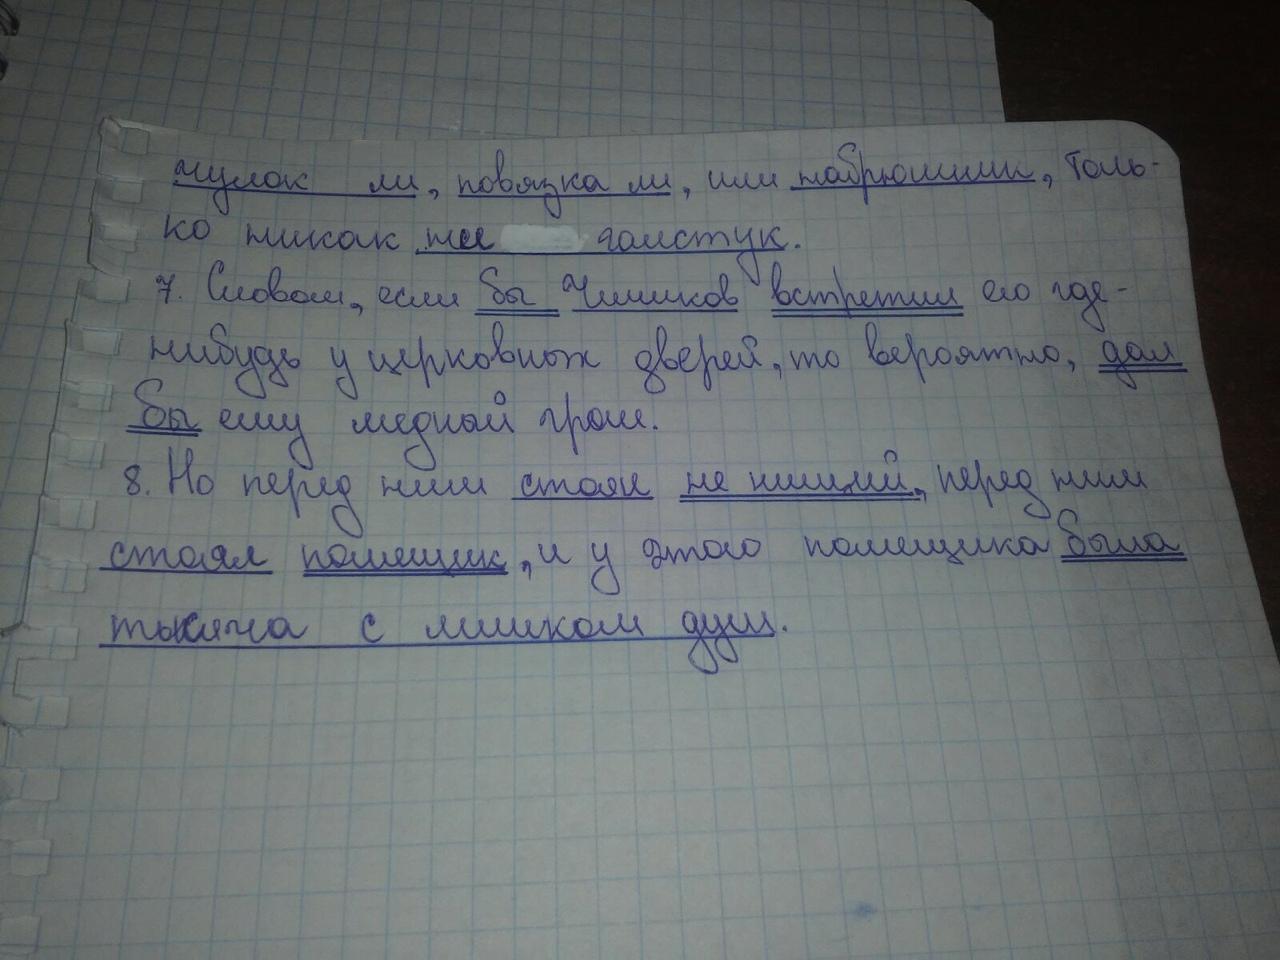 чулок ли, повязка ли, или набрюшник, толь-
ко никак не галстук.
7. Словом, если бы Чичиков встретил его где-
нибудь у церковных дверей, то вероятно, дал
бы ему медный грош.
8. Но перед ним стоял не нищий, перед ним
стоял помещик, и у этого помещика была
тысяча с лишком душ.